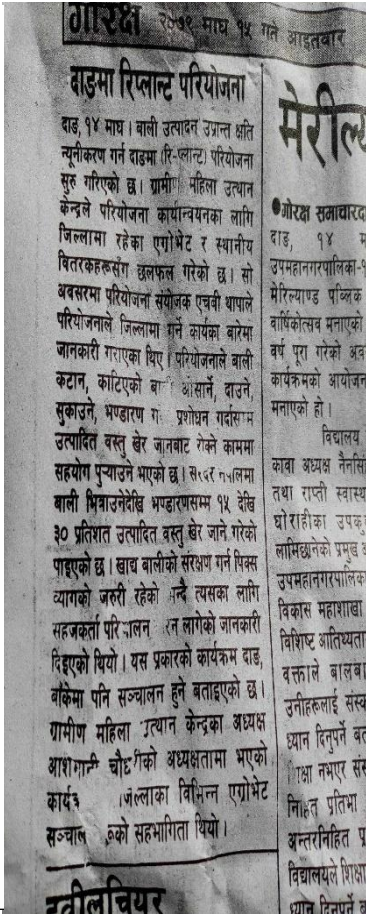 गोरक्ष २०७९ माघ १५ गते आइतबार
दाङमा रिप्लान्ट परियोजना
दाङ, १४ माघ । बाली उत्पादन उप्रान्त क्षति
न्यूनीकरण गर्न दाङमा (रि-प्लान्ट) परियोजना
सुरु गरिएको छ । ग्रामीण महिला उत्थान
केन्द्रले परियोजना कार्यान्वयनका लागि
जिल्लामा रहेका एग्रोभेट र स्थानीय
वितरकहरूसँग छलफल गरेको छ । सो
अवसरमा परियोजना संयोजक एचबी थापाले
परियोजनाले जिल्लामा गर्ने कार्यका बारेमा
जानकारी गराएका थिए । परियोजनाले बाली
कटान, काटिएको ओसार्ने, दाउने,
सुकाउने, भण्डारण प्रशोधन गर्दासम्म
उत्पादित वस्तु खेर जानबाट रोक्ने काममा
सहयोग पुर्‍याउने भएको छ । नेपालमा
बाली भित्राउनेदेखि भण्डारणसम्म १५ देखि
३० प्रतिशत उत्पादित वस्तु खेर जाने गरेको
पाइएको छ । खाद्य बालीको संरक्षण गर्न पिक्स
व्यागको जरुरी रहेको भन्दै त्यसका लागि
सहजकर्ता लागेको जानकारी
दिइएको थियो । यस प्रकारको कार्यक्रम दाङ,
बाँकेमा पनि सञ्चालन हुने बताइएको छ ।
ग्रामीण महिला उत्थान केन्द्रका अध्यक्ष
अध्यक्षतामा भएको
जिल्लाका विभिन्न एग्रोभेट
सहभागिता थियो ।
मेरील्य
●गोरक्ष समाचारदा
दाङ, १४ म
उपमहानगरपालिका-१
मेरिल्याण्ड पब्लिक
वार्षिकोत्सव मनाएको
वर्ष पूरा गरेको अव
कार्यक्रमको आयोजन
मनाएको हो ।
विद्यालय
कावा अध्यक्ष नैनसिं
तथा राप्ती स्वास्थ
घोराहीका उपकु
लामिछानेको प्रमुख अ
उपमहानगरपालिक
विकास महाशाखा
विशिष्ट आतिथ्यता
वक्ताले बालबा
उनीहरूलाई संस्क
ध्यान दिनुपर्ने बत
शिक्षा नभएर संस
निहित प्रतिभा
अन्तरनिहित प्र
विद्यालयले शिक्षा
ध्यान दिनुपर्ने ब